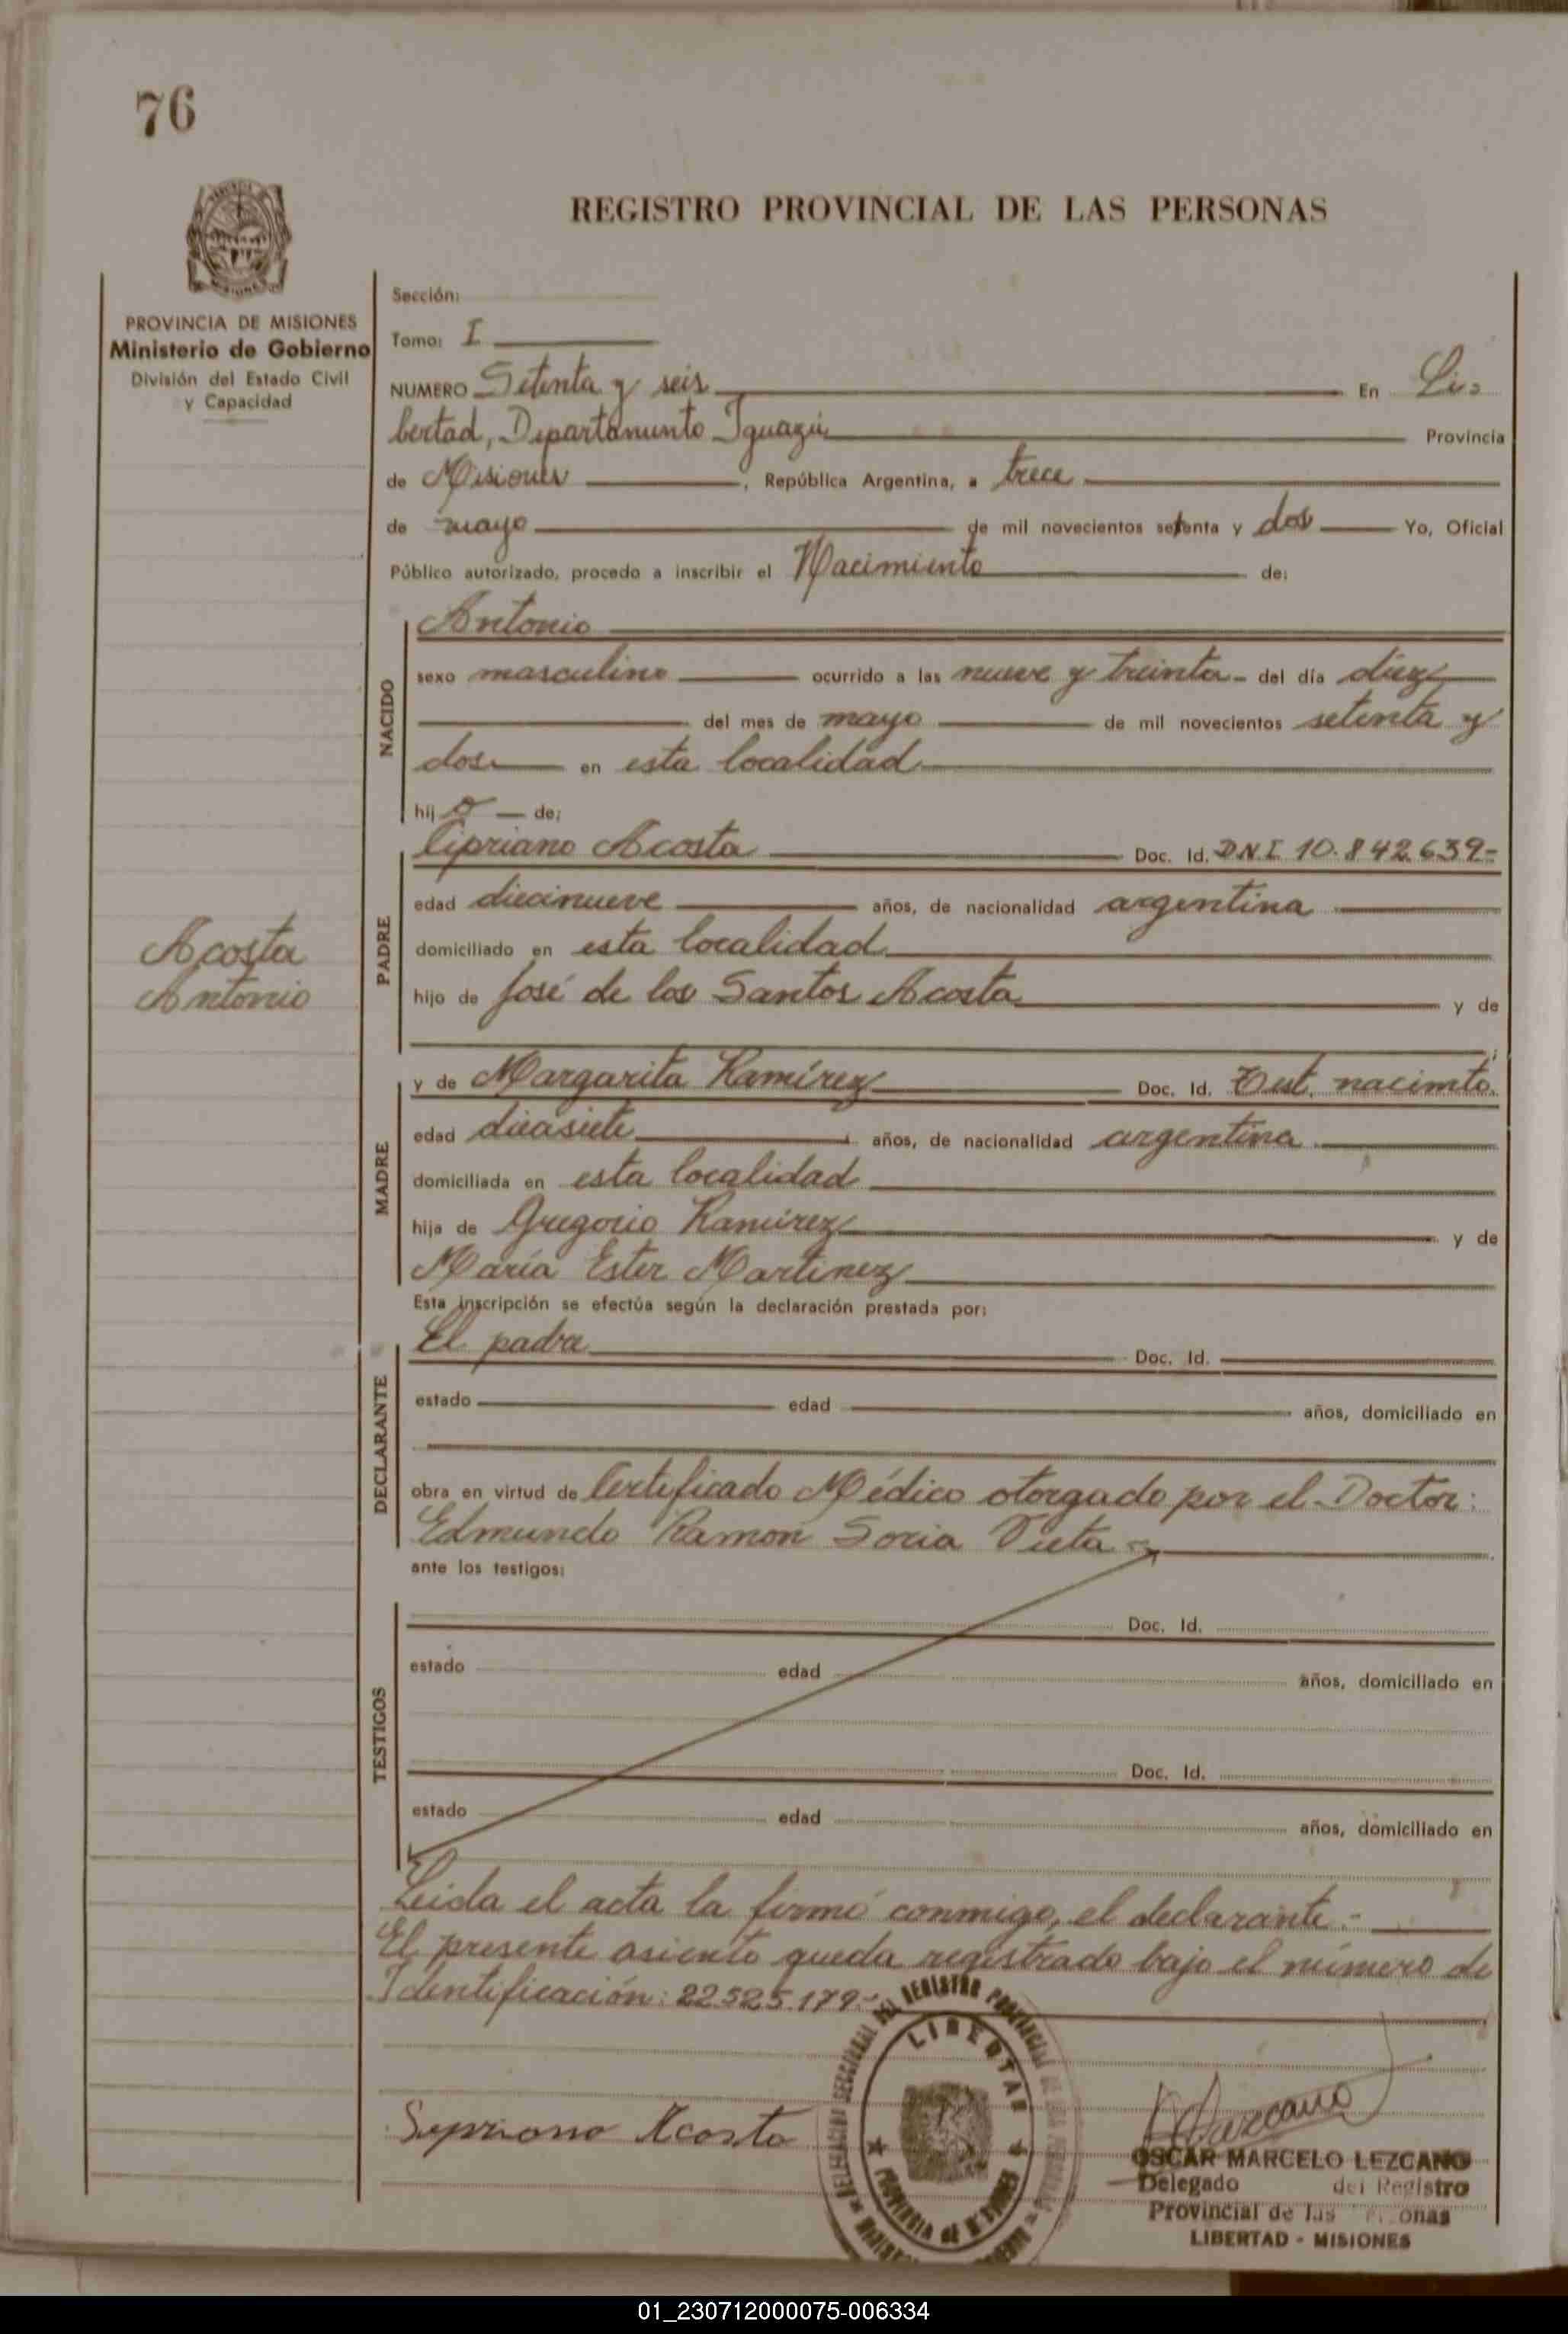 76
REGISTRO PROVINCIAL DE LAS PERSONAS
PROVINCIA DE MISIONES
Ministerio de Gobierno
División del Estado Civil
y Capacidad
Sección:
Tomo: I
NUMERO Setenta y seis En Li=
bertad, Departamento Iguazú Provincia
de Misiones, República Argentina, a trece
de mayo de mil novecientos setenta y dos Yo, Oficial
Público autorizado, procedo a inscribir el Nacimiento de:
NACIDO
Antonio
sexo masculino ocurrido a las nueve y treinta - del día diez
del mes de mayo de mil novecientos setenta y
dos en esta localidad
hijo de:
PADRE
Cipriano Acosta Doc. Id. DNI 10.842.639-
edad diecinueve años, de nacionalidad argentina
domiciliado en esta localidad
hijo de José de los Santos Acosta y de
Acosta
Antonio
MADRE
y de Margarita Ramírez Doc. Id. nacimto.
edad diecisiete años, de nacionalidad argentina
domiciliada en esta localidad
hija de Gregorio Ramírez y de
María Ester Martinez
Esta inscripción se efectúa según la declaración prestada por:
DECLARANTE
El padre Doc. Id.
estado edad años, domiciliado en
obra en virtud de Certificado Médico otorgado por el Doctor:
Edmundo Ramon Soria Vieta
ante los testigos:
TESTIGOS
Doc. Id.
estado edad años, domiciliado en
Doc. Id.
estado edad años, domiciliado en
Leida el acta la firmó conmigo, el declarante.-
El presente asiento queda registrado bajo el número de
Identificación: 22.525.179.-
DELEGACION SECCIONAL DEL REGISTRO PROVINCIAL DE LAS PERSONAS
LIBERTAD
PROVINCIA DE MISIONES
Sepriano Acosta
Lezcano
OSCAR MARCELO LEZCANO
Delegado del Registro
Provincial de las Personas
LIBERTAD - MISIONES
01_230712000075-006334